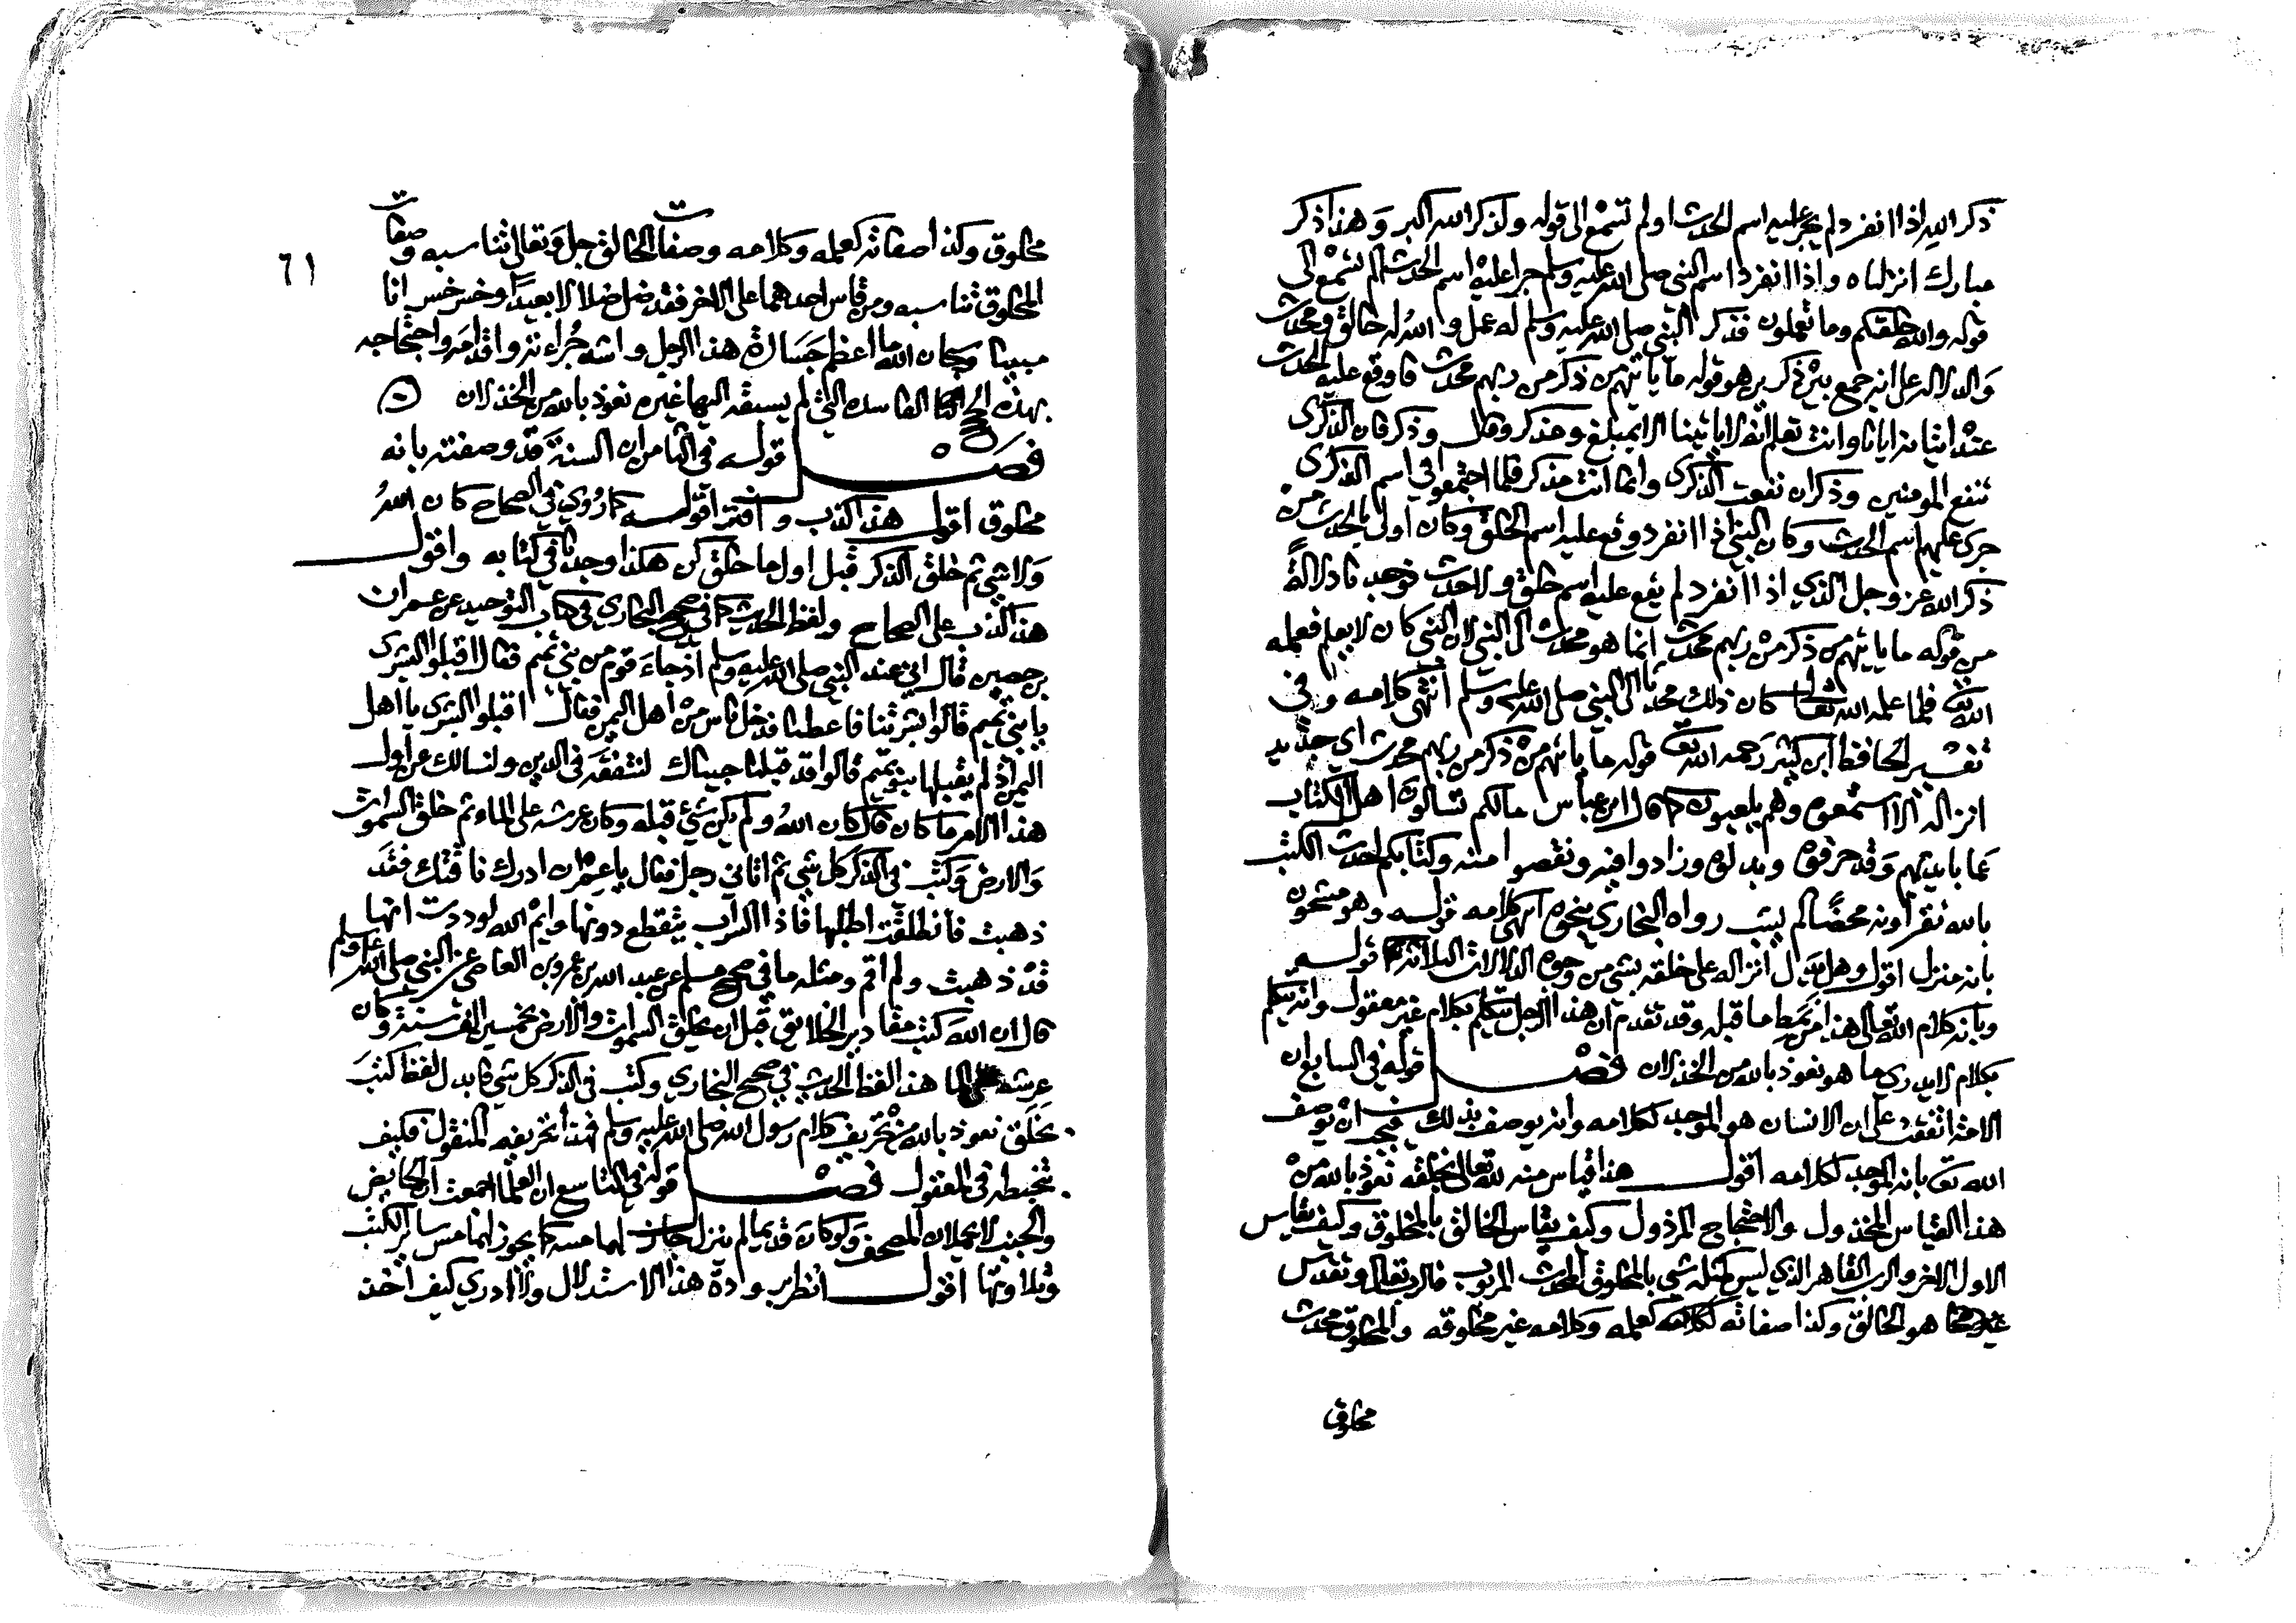 ذكر الله اذا انفرد لم يجر عليه اسم الحدث اولم تسمع الى قوله ولذكر الله اكبر وهذا ذكر
مبارك انزلناه واذا انفرد اسم النبي صلى الله عليه وسلم جرا عليه اسم الحدث الم تسمع الى
قوله والله خلقكم وما تعملون فذكر النبي صلى الله عليه وسلم له عمل والله له خالق ومحدث
والدلالة على انه جمع بين ذكرين هو قوله ما ياتيهم من ذكر من ربهم محدث فاوقع عليه الحدث
عند اتيانه ايانا وانت تعلم انه لا ياتينا الا بمبلغ ومذكر وقال وذكر فان الذكرى
تنفع المومنين وذكر ان نفعت الذكرى وانما انت مذكر فلما اجتمعوا في اسم الذكرى
جرى عليهم اسم الحدث وكان النبي اذا انفرد وقع عليه اسم الخلق وكان اولى بالحدث من
ذكر الله عز وجل الذي اذا انفرد لم يقع عليه اسم خلق ولا حدث فوجدنا دلالة
من قوله ما ياتيهم من ذكر من ربهم محدث انما هو محدث الى النبي لان النبي كان لا يعلم فعلمه
الله تع فلما علمه الله تعالى كان ذلك محدثا الى النبي صلى الله عليه وسلم انتهى كلامه وفي
تفسير الحافظ ابن كثير رحمه الله تع قوله ما ياتيهم من ذكر من ربهم محدث اي جديد
انزاله الا استمعوه وهم يلعبون كما قال ابن عباس مالكم تسالون اهل الكتاب
عما بايديهم وقد حرفوه وبدلوه وزادوا فيه ونقصوا منه وكتابكم احدث الكتب
بالله تقراونه محضا لم يشب رواه البخاري بنحوه انتهى كلامه قوله وهو مشحون
بانه منزل اقول وهل يدل انزاله على خلقه بشي من وجوه الدلالات الثلاثة قوله
وبانه كلام الله تعالى هذا من نمط ما قبله وقد تقدم ان هذا الرجل يتكلم بكلام غير معقول وانه يتكلم
بكلام لا يدري ما هو نعوذ بالله من الخذلان فصل قوله في السابع ان
الامة اتفقت على ان الانسان هو الموجد لكلامه وانه يوصف بذلك فيجب ان يوصف
الله تع بانه الموجد لكلامه اقول هذا قياس منه لله تعالى بخلقه نعوذ بالله من
هذا القياس المخذول والاحتجاج المرذول وكيف يقاس الخالق بالمخلوق وكيف يقاس
الاول الاخر والرب القاهر الذي ليس كمثله شي بالمخلوق المحدث المربوب فالرب تعالى وتقدس
هو الخالق وكذا صفاته كعلمه وكلامه غير مخلوقة والمخلوق محدث
مخلوق
٦١
مخلوق وكذا صفاته كعلمه وكلامه وصفات الخالق جل وتعالى تناسبه وصفات
المخلوق تناسبه ومن قاس احدهما على الاخر فقد ضل ضلالا بعيدا وخسر خسرانا
مبينا وسبحان الله ما اعظم جسارة هذا الرجل واشد جراءته واقدامه واحتجاجه
بهذه الحجج الفاسدة التي لم يسبقه اليها غيره نعوذ بالله من الخذلان
فصل قوله في الثامن ان السنة قد وصفته بانه
مخلوق اقول هذا كذب وافترا قوله كما روي في الصحاح كان الله
ولا شي ثم خلق الذكر قبل اول ما خلق كن هكذا وجدنا في كتابه واقول
هذا كذب على الصحاح ولفظ الحديث كما في صحيح البخاري في كتاب التوحيد عن عمران
بن حصين قال اني عند النبي صلى الله عليه وسلم اذ جاءه قوم من بني تميم فقال اقبلوا البشرى
يا بني تميم قالوا بشرتنا فاعطنا فدخل ناس من اهل اليمن فقال اقبلوا البشرى يا اهل
اليمن اذ لم يقبلها بنو تميم قالوا قد قبلنا جيناك لنتفقه في الدين ولنسالك عن اول
هذا الامر ما كان قال كان الله ولم يكن شي قبله وكان عرشه على الماء ثم خلق السموات
والارض وكتب في الذكر كل شي ثم اتاني رجل فقال يا عمران ادرك ناقتك فقد
ذهبت فانطلقت اطلبها فاذا السراب ينقطع دونها وايم الله لوددت انها
قد ذهبت ولم اقم ومثله ما في صحيح مسلم عن عبد الله بن عمرو بن العاص عن النبي صلى الله عليه وسلم
قال ان الله كتب مقادير الخلايق قبل ان يخلق السموات والارض بخمسين الف سنة وكان
عرشه على الما هذا لفظ الحديث في صحيح البخاري وكتب في الذكر كل شي فابدل لفظ كتب
بخلق نعوذ بالله من تحريف كلام رسول الله صلى الله عليه وسلم فهذا تحريفه المنقول فكيف
تخبطه في المعقول فصل قوله في التاسع ان العلما اجمعت ان الحايض
والجنب لا يحملان المصحف ولو كان قديما لم ينزل جاز لهما مسه كما يجوز لهما مس ساير الكتب
وتلاوتها اقول انظر برودة هذا الاستدلال ولا ادري كيف اخذ